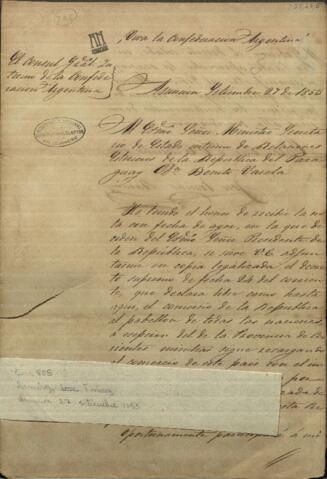 ¡Viva la Confederacion Argentina!
El Consul Gral In-
terino de la Confede-
racion Argentina
Asuncion Setiembre 27 de 1855
Al Exmo Señor Ministro Secreta-
rio de Estado interino de Relaciones
Exteriores de la Republica del Para-
guay Dn. Benito Varela
He tenido el honor de recibir la no-
ta con fecha de ayer, en la que de
orden del Exmo Señor Presidente de
la Republica, se sirve V.E. adjun-
tarme en copia legalizada el decre-
to supremo de fecha 24 del corrien-
te, que declara libre como hasta
aqui, el comercio de la Republica
al pabellon de todas las naciones,
a escepcion del de la Provincia de Co-
rrientes mientras sigue recargando
el comercio de este pais con el im-
por
Asuncion 27 setiembre 1855
oportunamente a mi